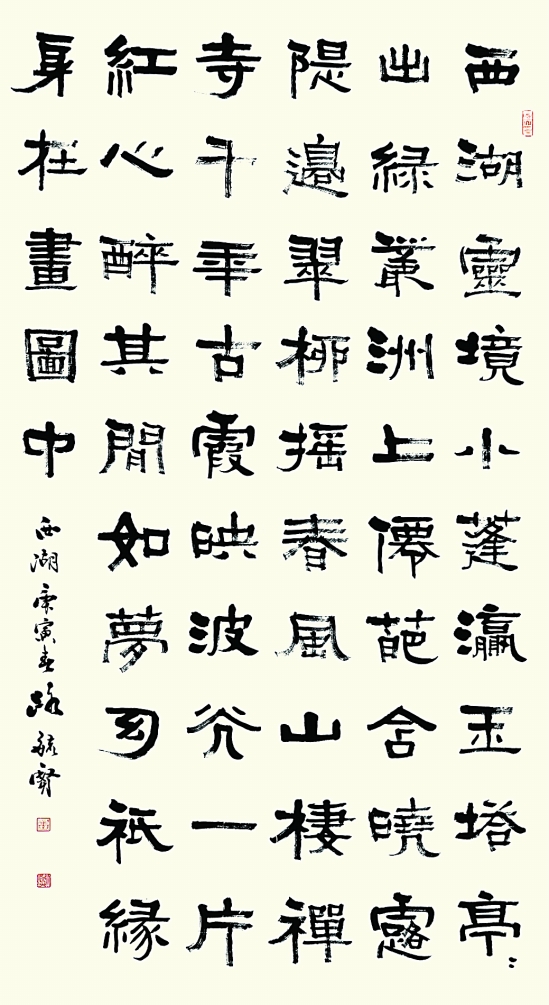 西湖靈境小蓬瀛玉塔亭〻
出綠叢洲上僊葩含曉露
隄邉翠柳摇春風山棲禪
寺千年古霞映波光一片
紅心醉其間如夢幻祇緣
身在畫圖中
西湖 庚寅春 詠 毓賓